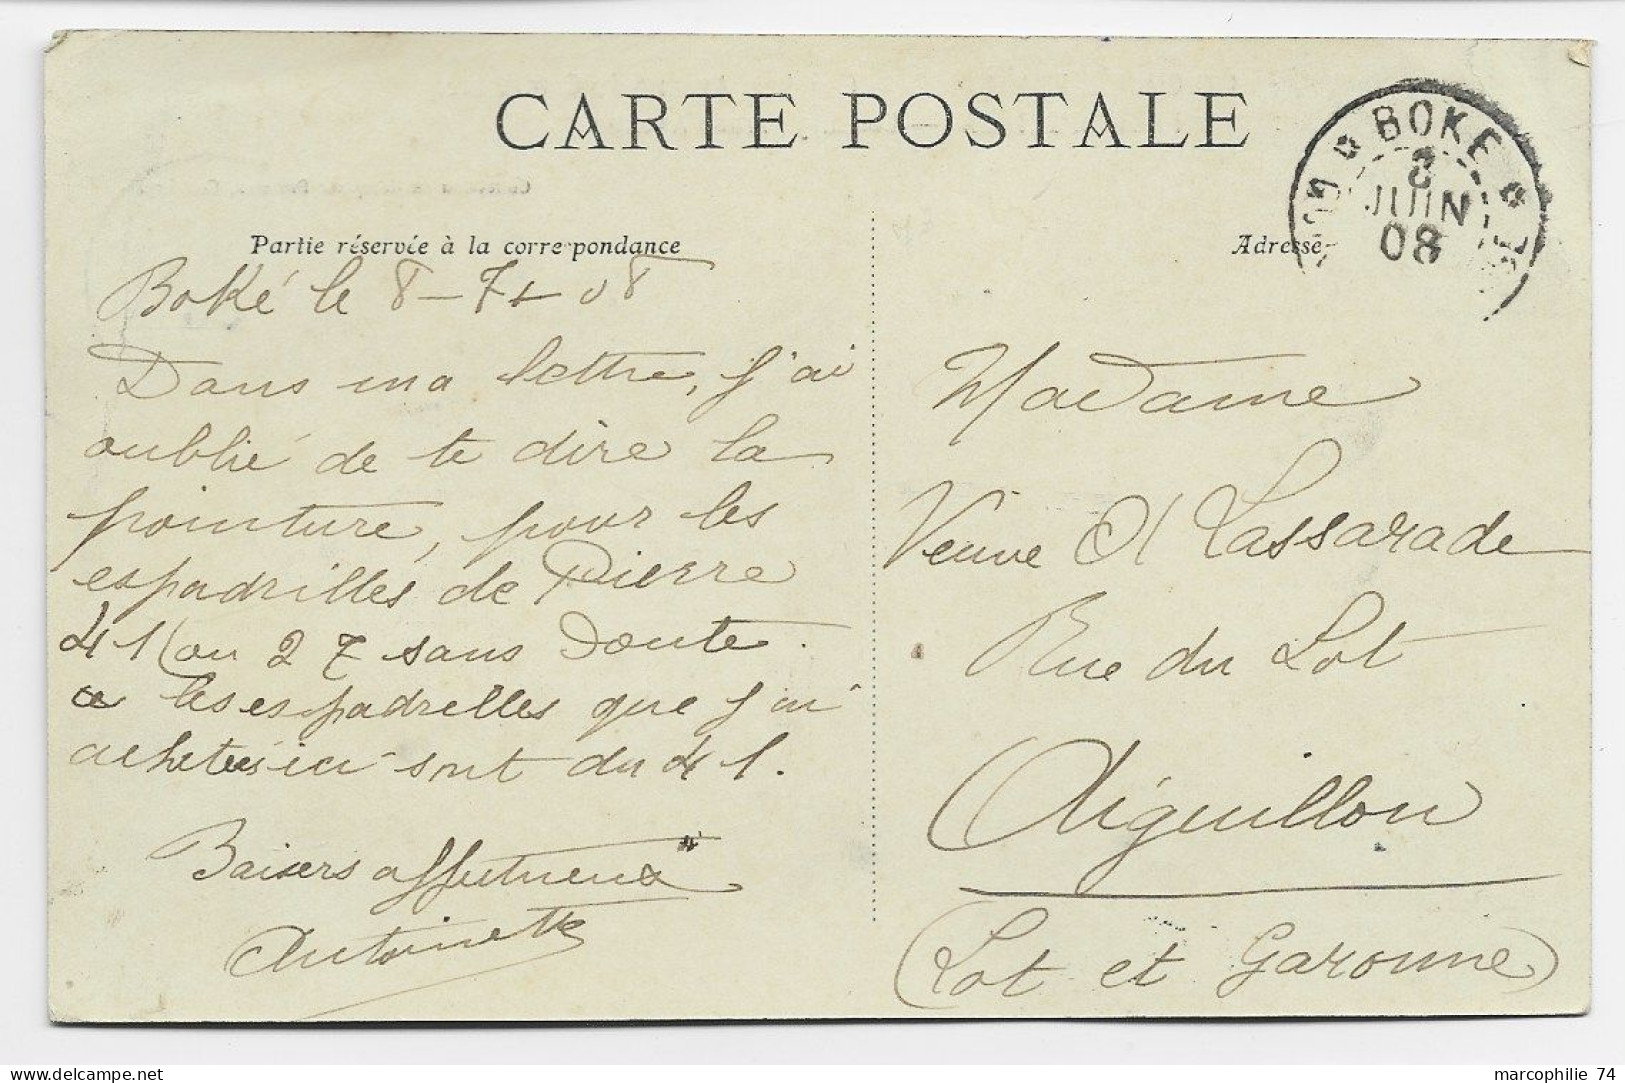 CARTE POSTALE
BOKE
8
JUIN
08
Partie réservée à la correspondance
Adresse
Boké le 8-7-08
Dans ma lettre, j'ai
oublié de te dire la
pointure, pour les
espadrilles de Pierre
41 (ou 27 sans doute.
les espadrelles que j'ai
achetées ici sont du 41.
Baisers affectueux
Antoinette
Madame
Veuve Lassarade
Rue du Lot
Aiguillon
(Lot et Garonne)
marcophilie 74